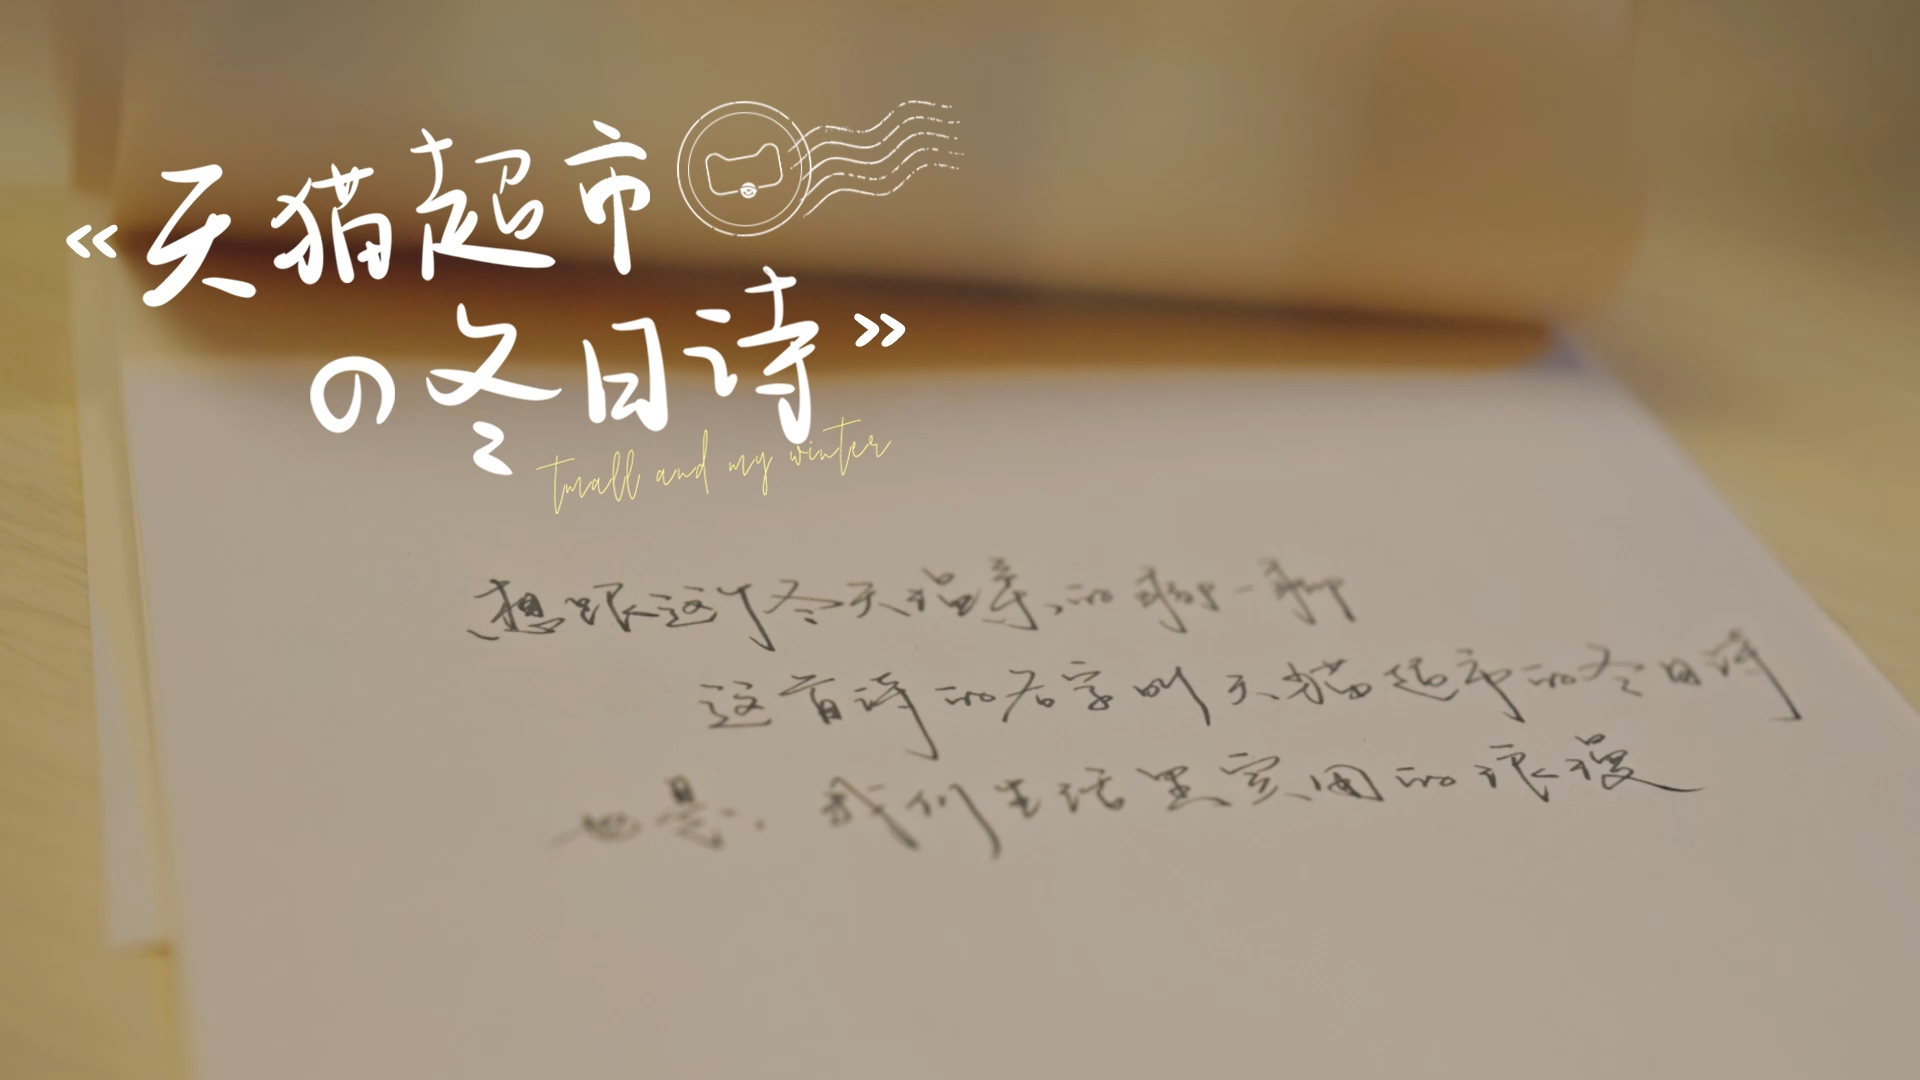 《天猫超市
の冬日诗》
tmall and my winter
想跟这个冬天温柔的聊一聊
这首诗的名字叫天猫超市的冬日诗
也是,我们生活里实用的浪漫